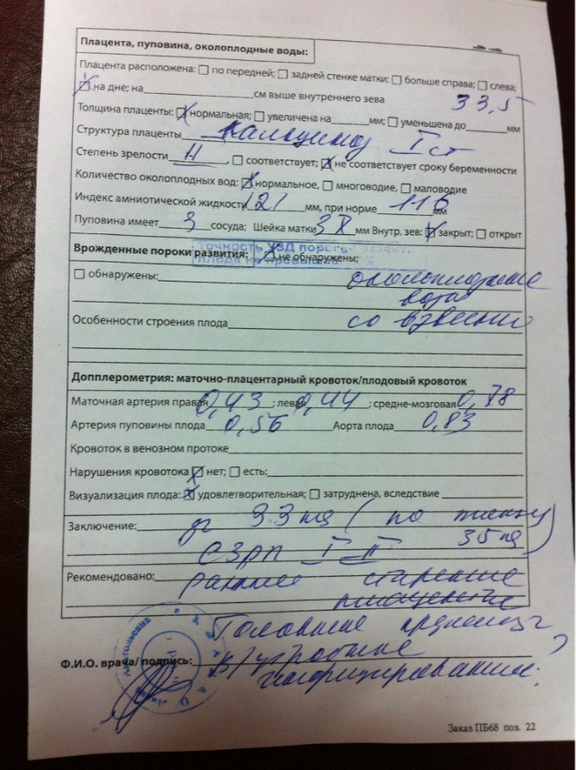 Плацента, пуповина, околоплодные воды:
Плацента расположена: по передней; задней стенке матки; больше справа; слева;
на дне; на см выше внутреннего зева 33,5
Толщина плаценты: нормальная; увеличена на мм; уменьшена до мм
Структура плаценты кальциноз I ст
Степень зрелости II, соответствует; не соответствует сроку беременности
Количество околоплодных вод: нормальное, многоводие, маловодие
Индекс амниотической жидкости 121 мм, при норме 116 мм
Пуповина имеет 3 сосуда; Шейка матки мм Внутр. зев: закрыт; открыт
Точность УЗД порогов развит
плода не превышает
Врожденные пороки развития: не обнаружены;
обнаружены: околоплодные
воды
Особенности строения плода со взвесью
Допплерометрия: маточно-плацентарный кровоток/плодовый кровоток
Маточная артерия правая 0,43; левая 0,44; средне-мозговая 0,78
Артерия пуповины плода 0,56 Аорта плода 0,83
Кровоток в венозном протоке
Нарушения кровотока нет; есть:
Визуализация плода: удовлетворительная; затруднена, вследствие
Заключение: 33 нд (по
35 нд)
СЗРП I II
Рекомендовано: раннее старение
плаценты
Головное
Ф.И.О. врача/ подпись: в/утробное
инфицирование
Заказ ПБ68 поз. 22